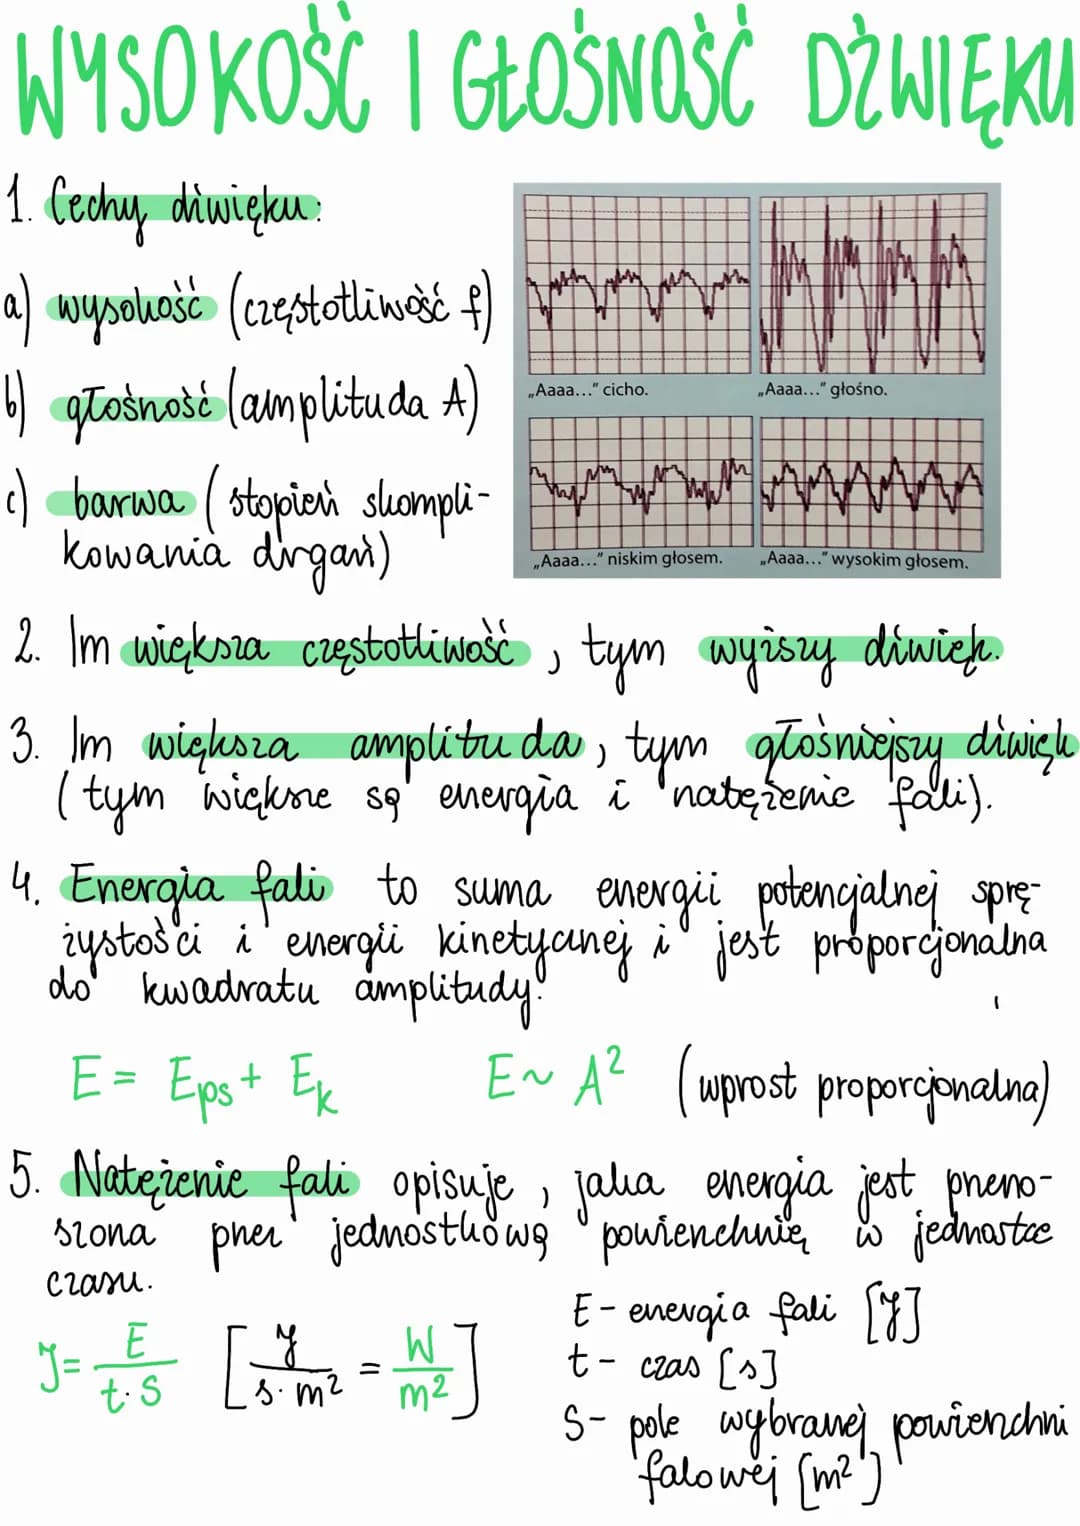 WYSOKOŚĆ I GŁOŚNOŚĆ DŹWIĘKU
1. Cechy dźwięku:
a) wysokość (częstotliwość f)
b) głośność (amplituda A)
c) barwa (stopień skompli-
kowania drgań)
„Aaaa...” cicho.
„Aaaa...” głośno.
„Aaaa...” niskim głosem.
„Aaaa...” wysokim głosem.
2. Im większa częstotliwość, tym wyższy dźwięk.
3. Im większa amplituda, tym głośniejszy dźwięk
(tym większe są energia i natężenie fali).
4. Energia fali to suma energii potencjalnej sprę-
żystości i energii kinetycznej i jest proporcjonalna
do kwadratu amplitudy.
E = Eps + Ek E ~ A² (wprost proporcjonalna)
5. Natężenie fali opisuje, jaka energia jest przeno-
szona przez jednostkową powierzchnię w jednostce
czasu.
J = E / t · S [J / s · m² = W / m²]
E - energia fali [J]
t - czas [s]
S - pole wybranej powierzchni
falowej [m²]